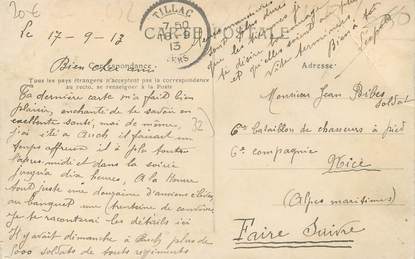 20€
TILLAC
7 50
13
GERS
le 17-9-13
CARTE POSTALE
Correspondance
Adresse :
Tous les pays étrangers n'acceptent pas la correspondance
au recto, se renseigner à la Poste
Bien cher ami
Ta dernière carte m'a fait bien
plaisir, enchanté de te savoir en
excellente santé, moi de même,
j'ai été à Auch il faisait un
temps affreux il a plu toute
l'après-midi et dans la soirée
jusqu'à dix heures, A la
tout juste une douzaine d'anciens élèves
au banquet une trentaine de convives
je te raconterai les détails ici
Il y avait dimanche à Auch plus de
000 soldats de touts régiments
que les
je désire bon
et qu'elles soient au plus
vite terminées
Bien à toi
Monsieur Jean Bibes
soldat
6e bataillon de chasseurs à pied
6e compagnie
Nice
(Alpes maritimes)
Faire Suivre